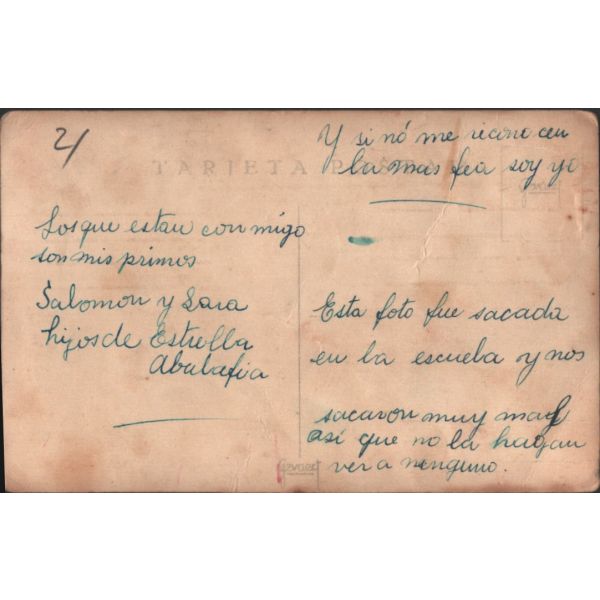 21
Y si nó me reconocen
TARJETA POSTAL
la mas fea soy yo
Los que estan con migo
son mis primos
Salomon y Sara
hijos de Estrella
Abulafia
Esta foto fue sacada
en la escuela y nos
sacaron muy mal
así que no la hagan
ver a ninguno.
Gevaert